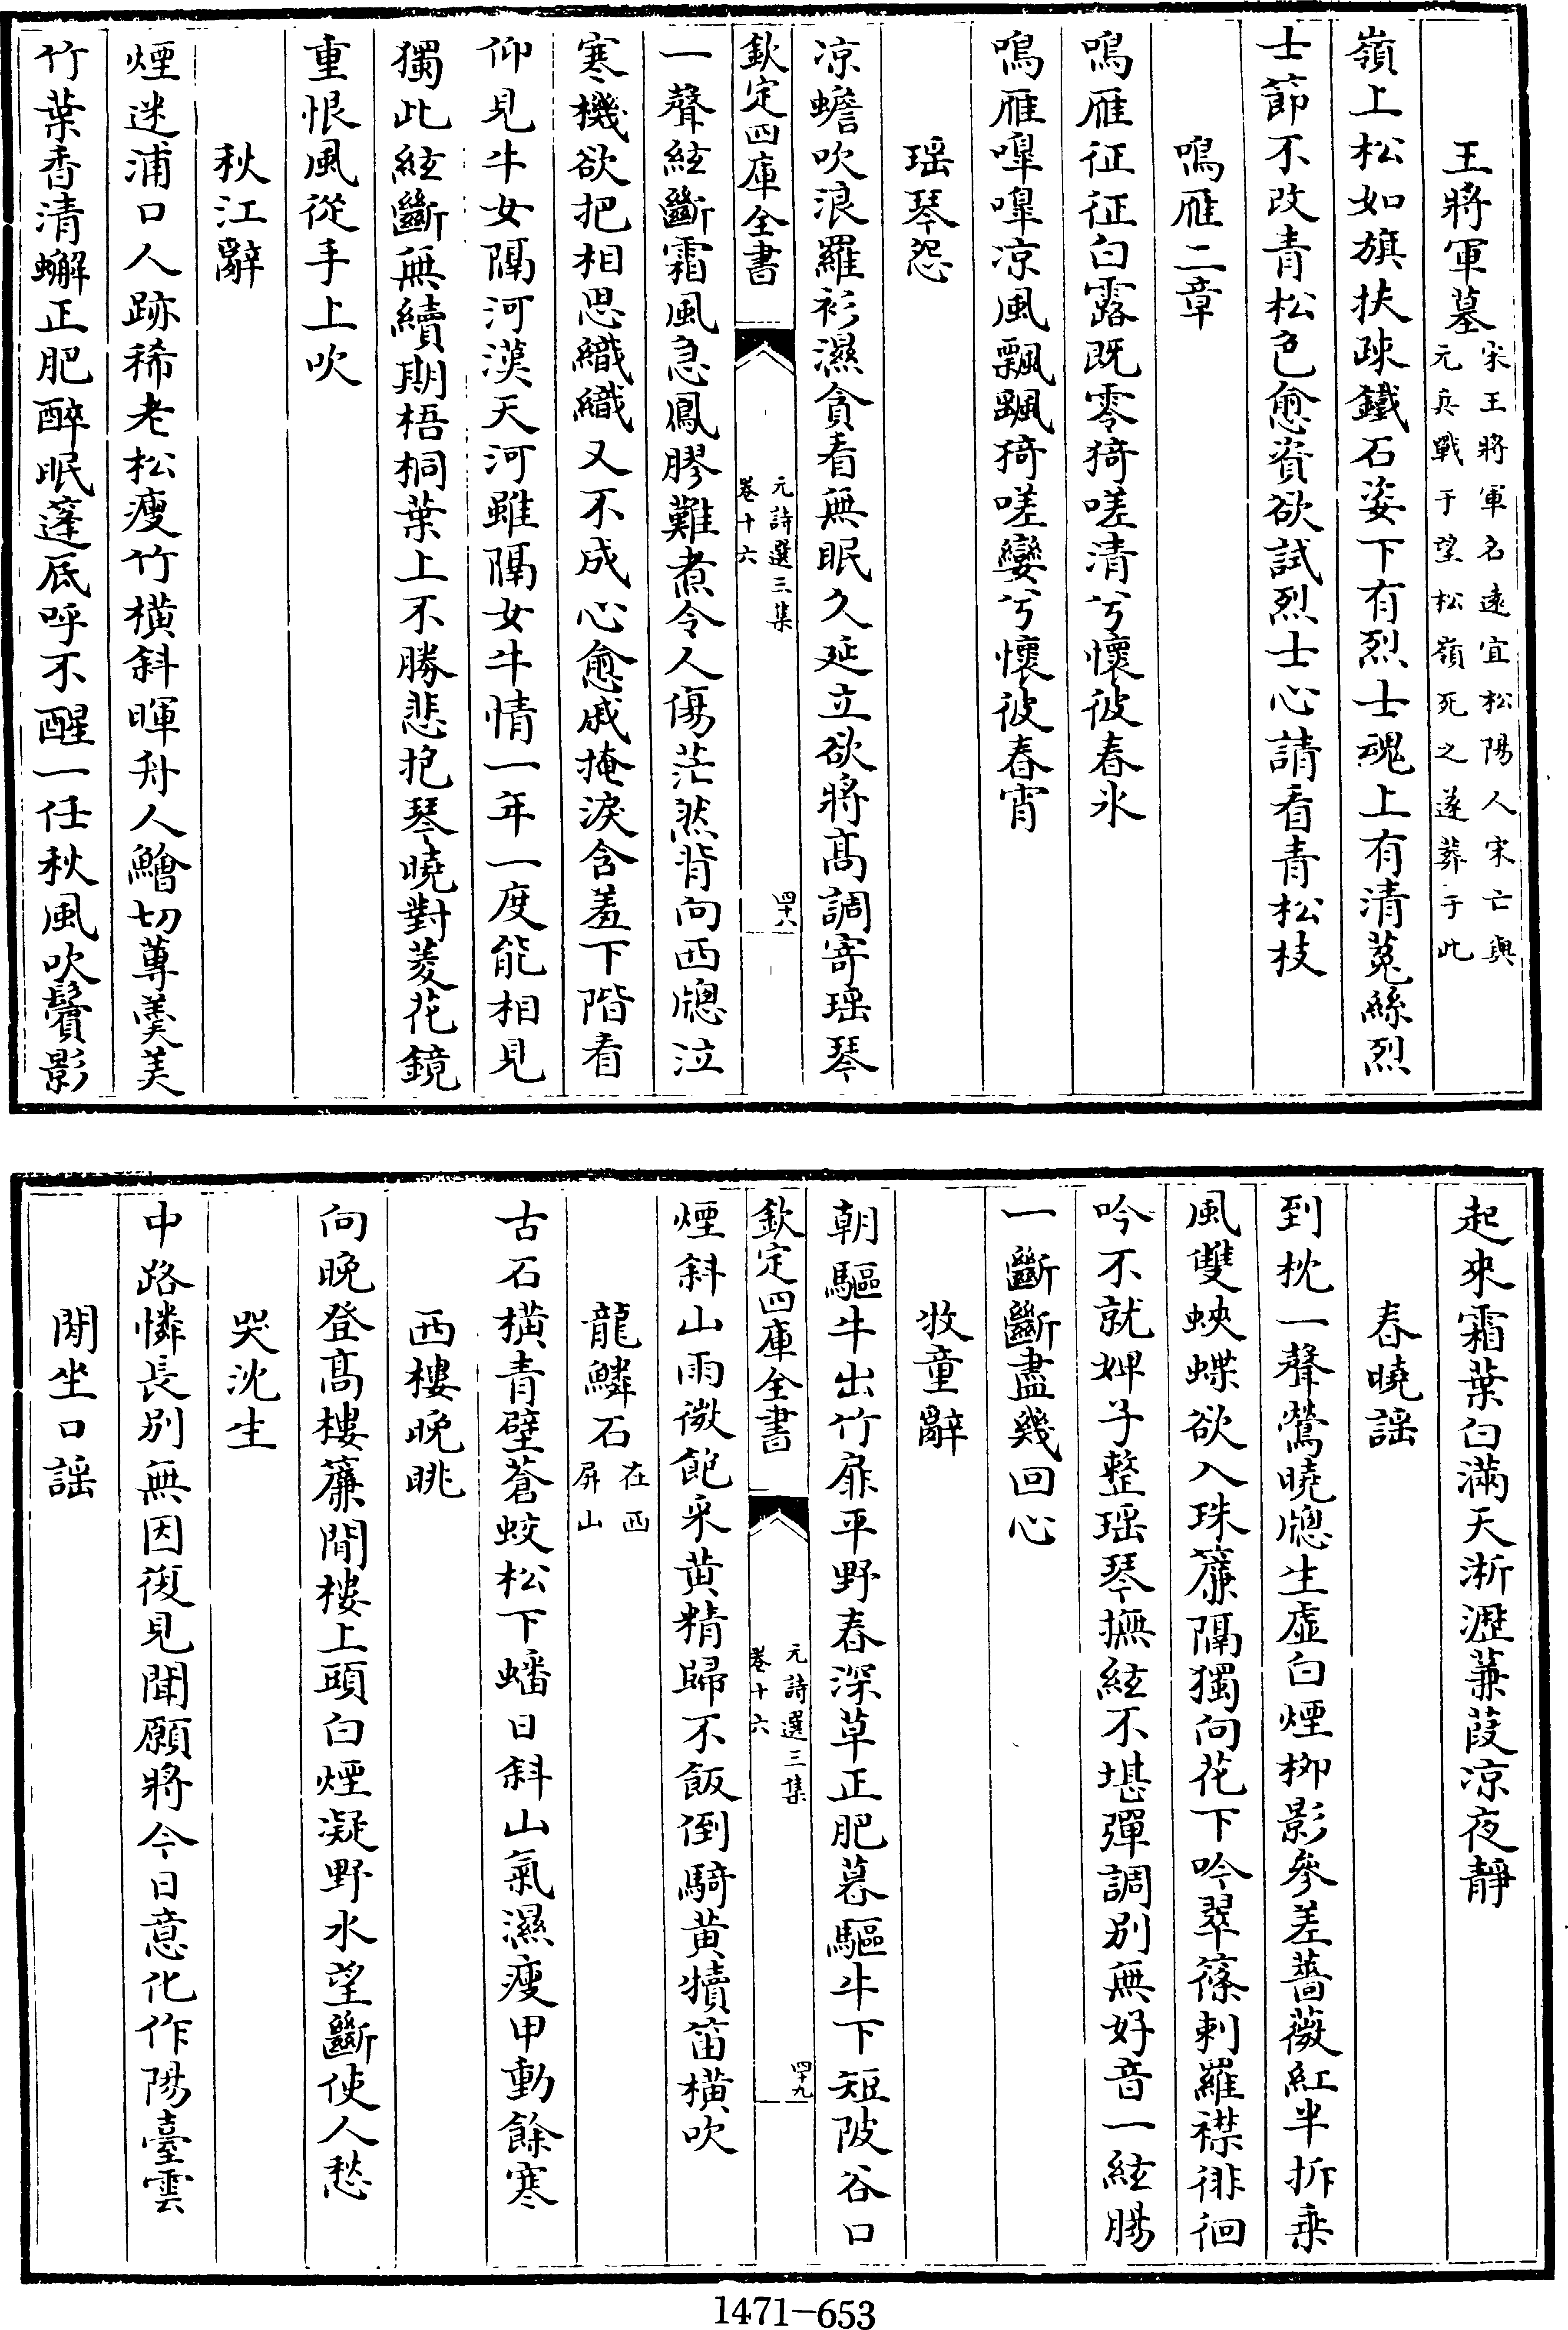 王將軍墓宋王將軍名遠宜松陽人宋亡與
元兵戰于望松嶺死之遂葬于此
嶺上松如旗扶疎鐵石姿下有烈士魂上有清菟絲烈
士節不改青松色愈資欲試烈士心請看青松枝
鳴雁二章
鳴雁征征白露既零猗嗟清兮懷彼春氷
鳴雁嘷嘷凉風飄飄猗嗟孌兮懷彼春宵
瑶琴怨
凉蟾吹浪羅衫濕貪看無眠久延立欲將髙調寄瑶琴
欽定四庫全書
元詩選三集
卷十六
四十八
一聲絃斷霜風急鳳膠難煮令人傷茫然背向西牕泣
寒機欲把相思織織又不成心愈戚掩淚含羞下階看
仰見牛女隔河漢天河雖隔女牛情一年一度能相見
獨此絃斷無續期梧桐葉上不勝悲抱琴曉對菱花鏡
重恨風從手上吹
秋江辭
煙迷浦口人跡稀老松瘦竹橫斜暉舟人鱠切蓴羮美
竹葉香清蠏正肥醉眠蓬底呼不醒一任秋風吹鬢影
起來霜葉白滿天淅瀝蒹葭凉夜靜
春曉謡
到枕一聲鶯曉牕生虚白煙栁影參差薔薇紅半拆乗
風雙蛺蝶欲入珠簾隔獨向花下吟翠篠刺羅襟徘徊
吟不就婢子整瑶琴撫絃不堪彈調别無好音一絃腸
一斷斷盡幾回心
牧童辭
朝驅牛出竹扉平野春深草正肥暮驅牛下短陂谷口
欽定四庫全書
元詩選三集
卷十六
四十九
煙斜山雨微飽采黄精歸不飯倒騎黄犢笛橫吹
龍鱗石在西
屏山
古石橫青壁蒼蛟松下蟠日斜山氣濕瘦甲動餘寒
西樓晚眺
向晚登髙樓簾間樓上頭白煙凝野水望斷使人愁
哭沈生
中路憐長别無因復見聞願將今日意化作陽臺雲
閒坐口謡
1471-653